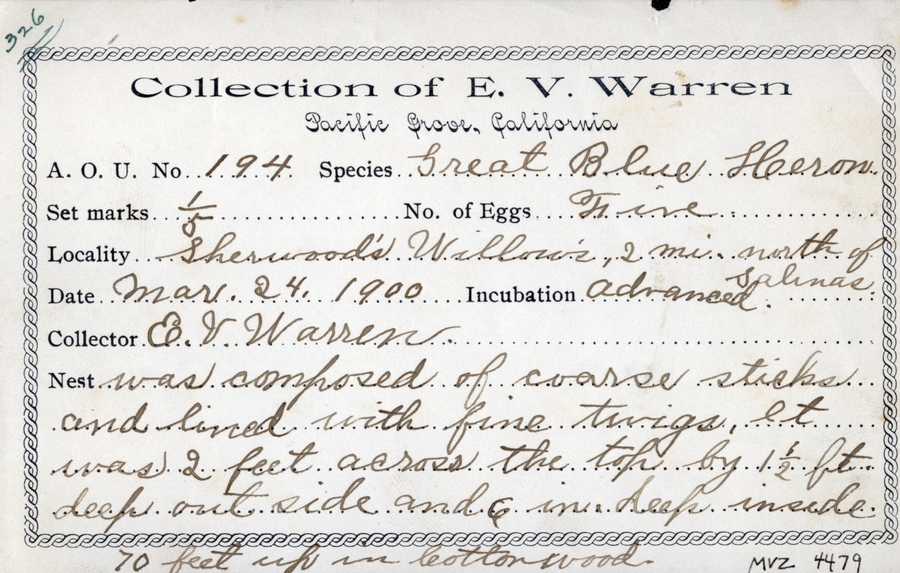 326
Collection of E. V. Warren
Pacific Grove, California
A. O. U. No. 194 Species Great Blue Heron
Set marks 1/5 No. of Eggs Five
Locality Sherwood's Willows, 2 mi. north of
Salinas.
Date Mar. 24, 1900 Incubation advanced.
Collector E. V. Warren.
Nest was composed of coarse sticks
and lined with fine twigs, It
was 2 feet across the top by 1 1/2 ft.
deep out side and 6 in. deep inside.
70 feet up in Cottonwood.
MVZ 4479